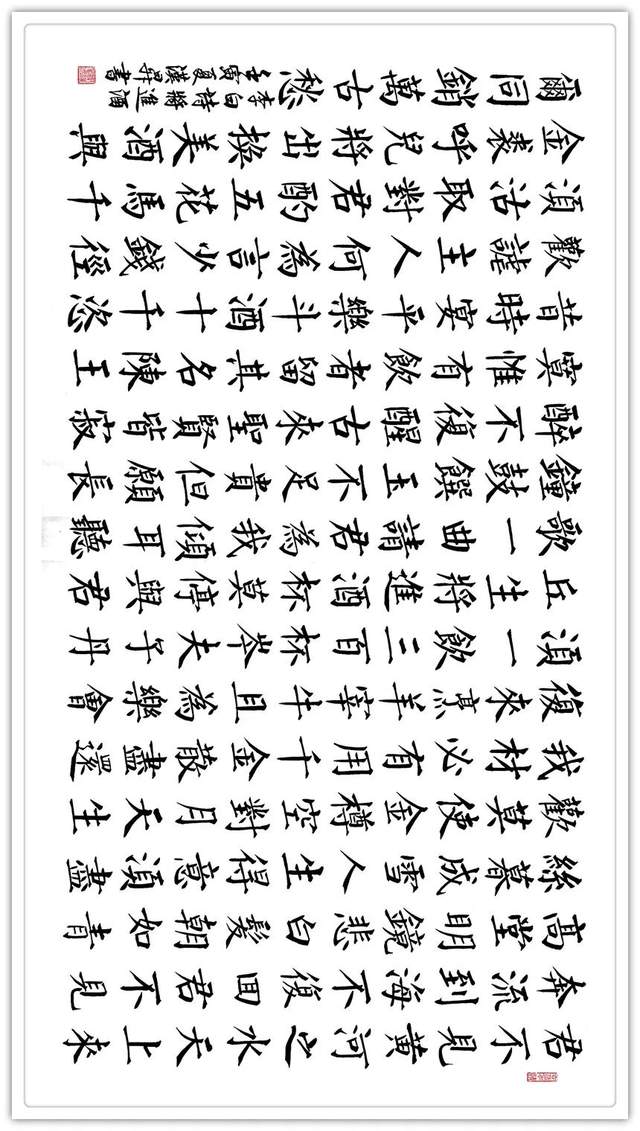 君不見黃河之水天上來
奔流到海不復回君不見
高堂明鏡悲白髮朝如青
絲暮成雪人生得意須盡
歡莫使金樽空對月天生
我材必有用千金散盡還
復來烹羊宰牛且為樂會
須一飲三百杯岑夫子丹
丘生將進酒杯莫停與君
歌一曲請君為我傾耳聽
鐘鼓饌玉不足貴但願長
醉不復醒古來聖賢皆寂
寞惟有飲者留其名陳王
昔時宴平樂斗酒十千恣
歡謔主人何為言少錢徑
須沽取對君酌五花馬千
金裘呼兒將出換美酒與
爾同銷萬古愁
李白詩將進酒
壬寅夏漢昇書